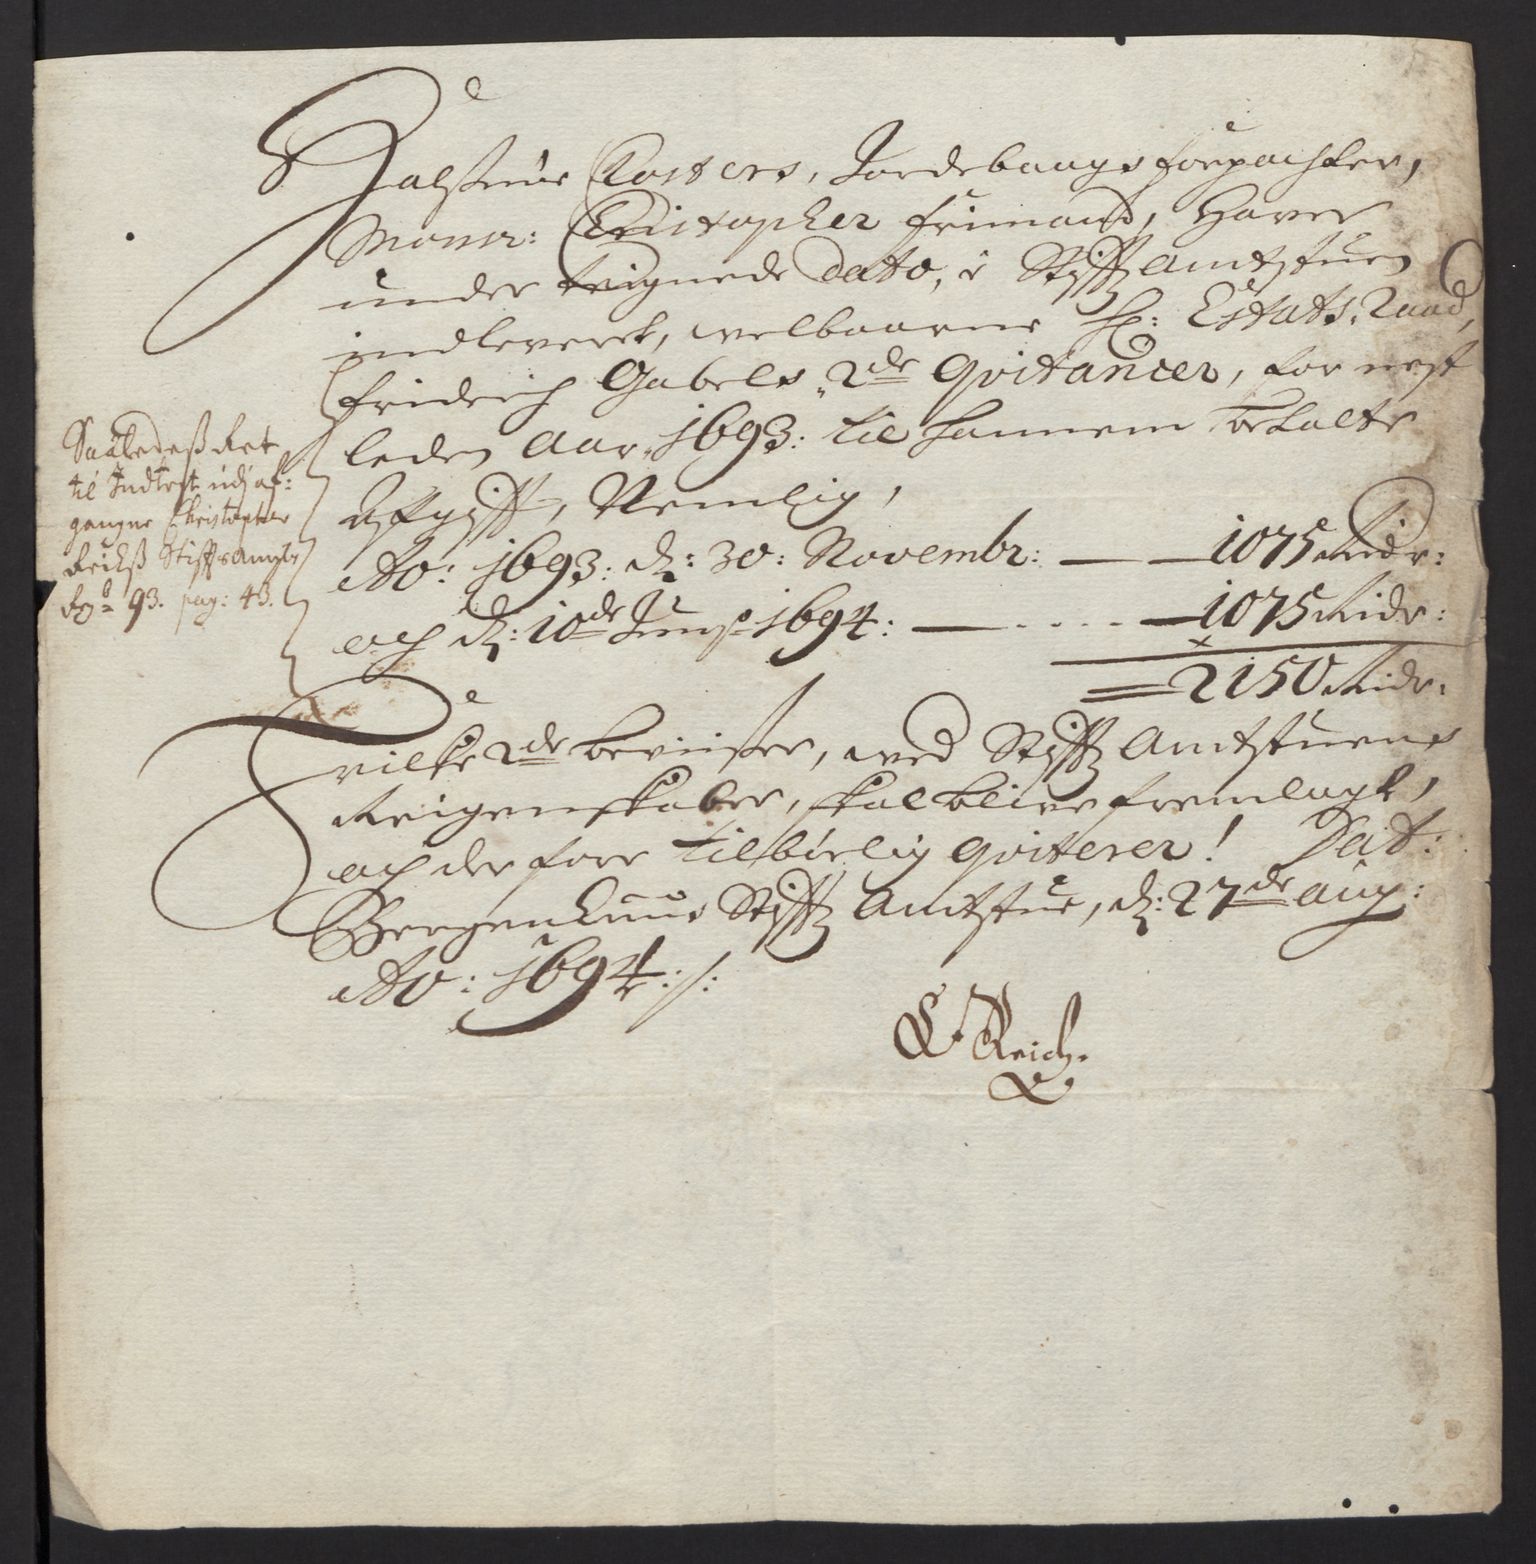 Halsnøe Closters, Jordebougs forpachter,
Monsr: Christopher Friman, Haver
under teignede dato, i Stifft Amtstuen
indleveret, welbaarne Hr: Estats Raad,
Friderich Gabels, 2de Qvitancier, for nest
leden Aar, 1693: til hannem betalte
Afgifft, Nemlig,
Ao: 1693: d: 30: Novembr: — — 1075 Ridr:
och d: 10de Junij 1694: — — 1075 Ridr:
2150 Ridr:
Hvilke 2de beviiser, wed Stifft Amtstuens
Reigenskaber, skal blive fremlagt,
och der fore tilbørlig qviterer! Dat:
Bergenhuus Stifft Amtstue, d: 27de Aug:
Ao: 1694 :/:
Reich.
Saaledeß Ret
til Indtegt udj af:
gangne Christopher
Reichß Stifftsamptz
Rgß 93. pag: 43.